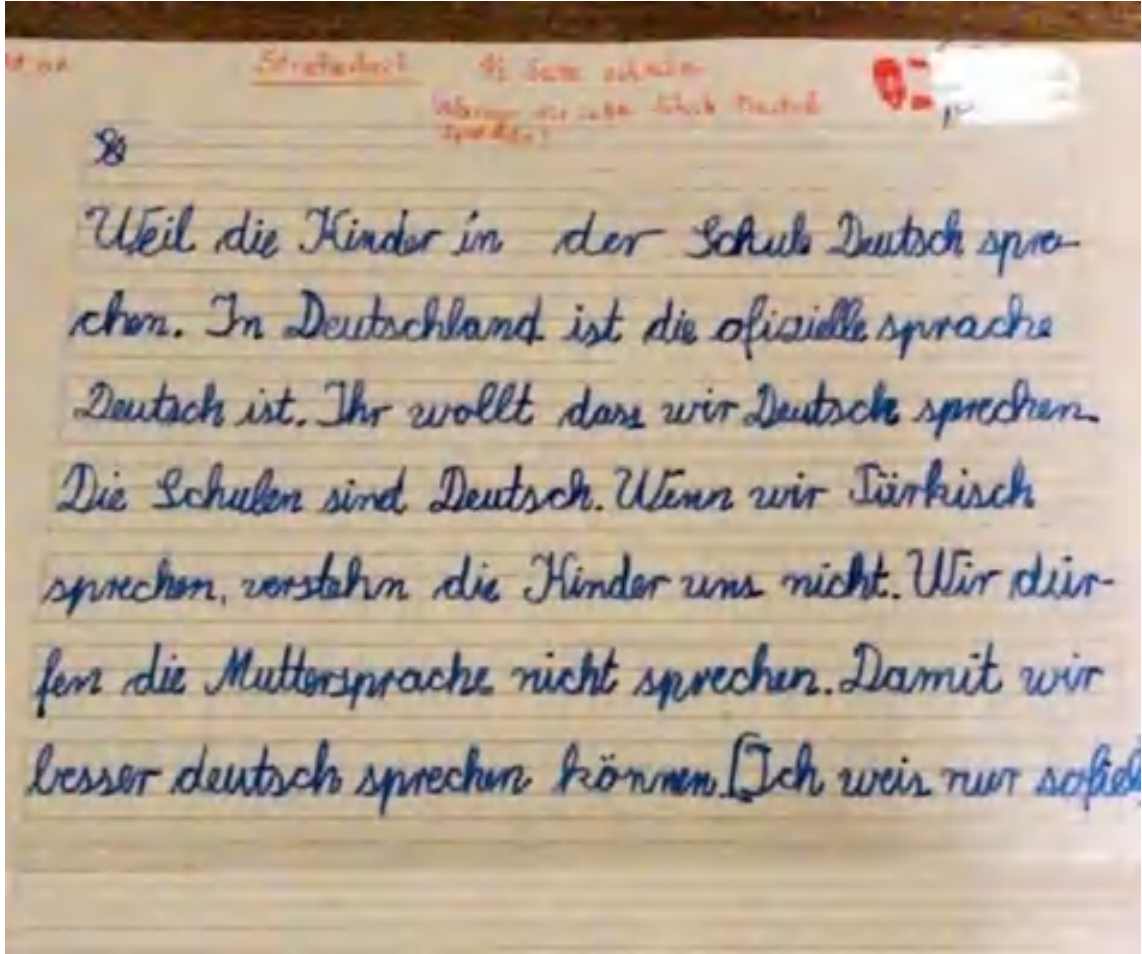 Strafarbeit
Weil die Kinder in der Schule Deutsch spre-
chen. In Deutschland ist die ofizielle sprache
Deutsch ist. Ihr wollt dass wir Deutsch sprechen.
Die Schulen sind Deutsch. Wenn wir Türkisch
sprechen, verstehn die Kinder uns nicht. Wir dür-
fen die Muttersprache nicht sprechen. Damit wir
besser deutsch sprechen können. [Ich weis nur sofiel